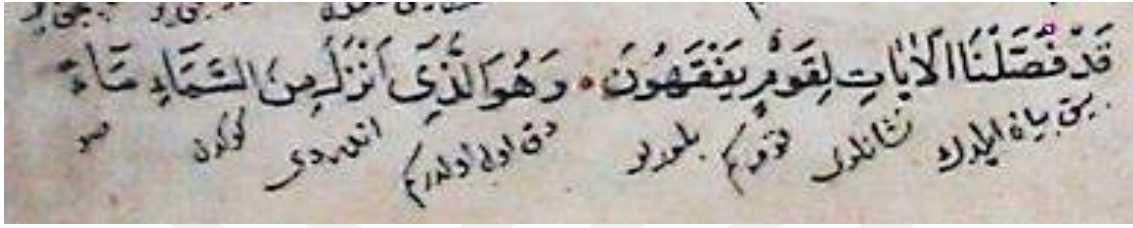 قَدْ فَصَّلْنَا الْاٰيَاتِ لِقَوْمٍ يَفْقَهُونَ • وَهُوَ الَّذِى اَنْزَلَ مِنَ السَّمَاءِ مَاءً
بيان ايلدك نشانلرى قومه كم بلورلر دقى اول اولدركم اندردى كوكدن صو